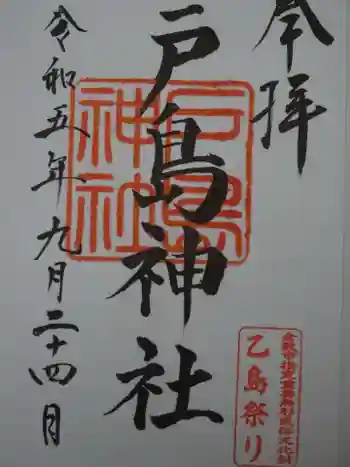 奉拝
戸島神社
令和五年九月二十四日
戸島神社
乙島祭り